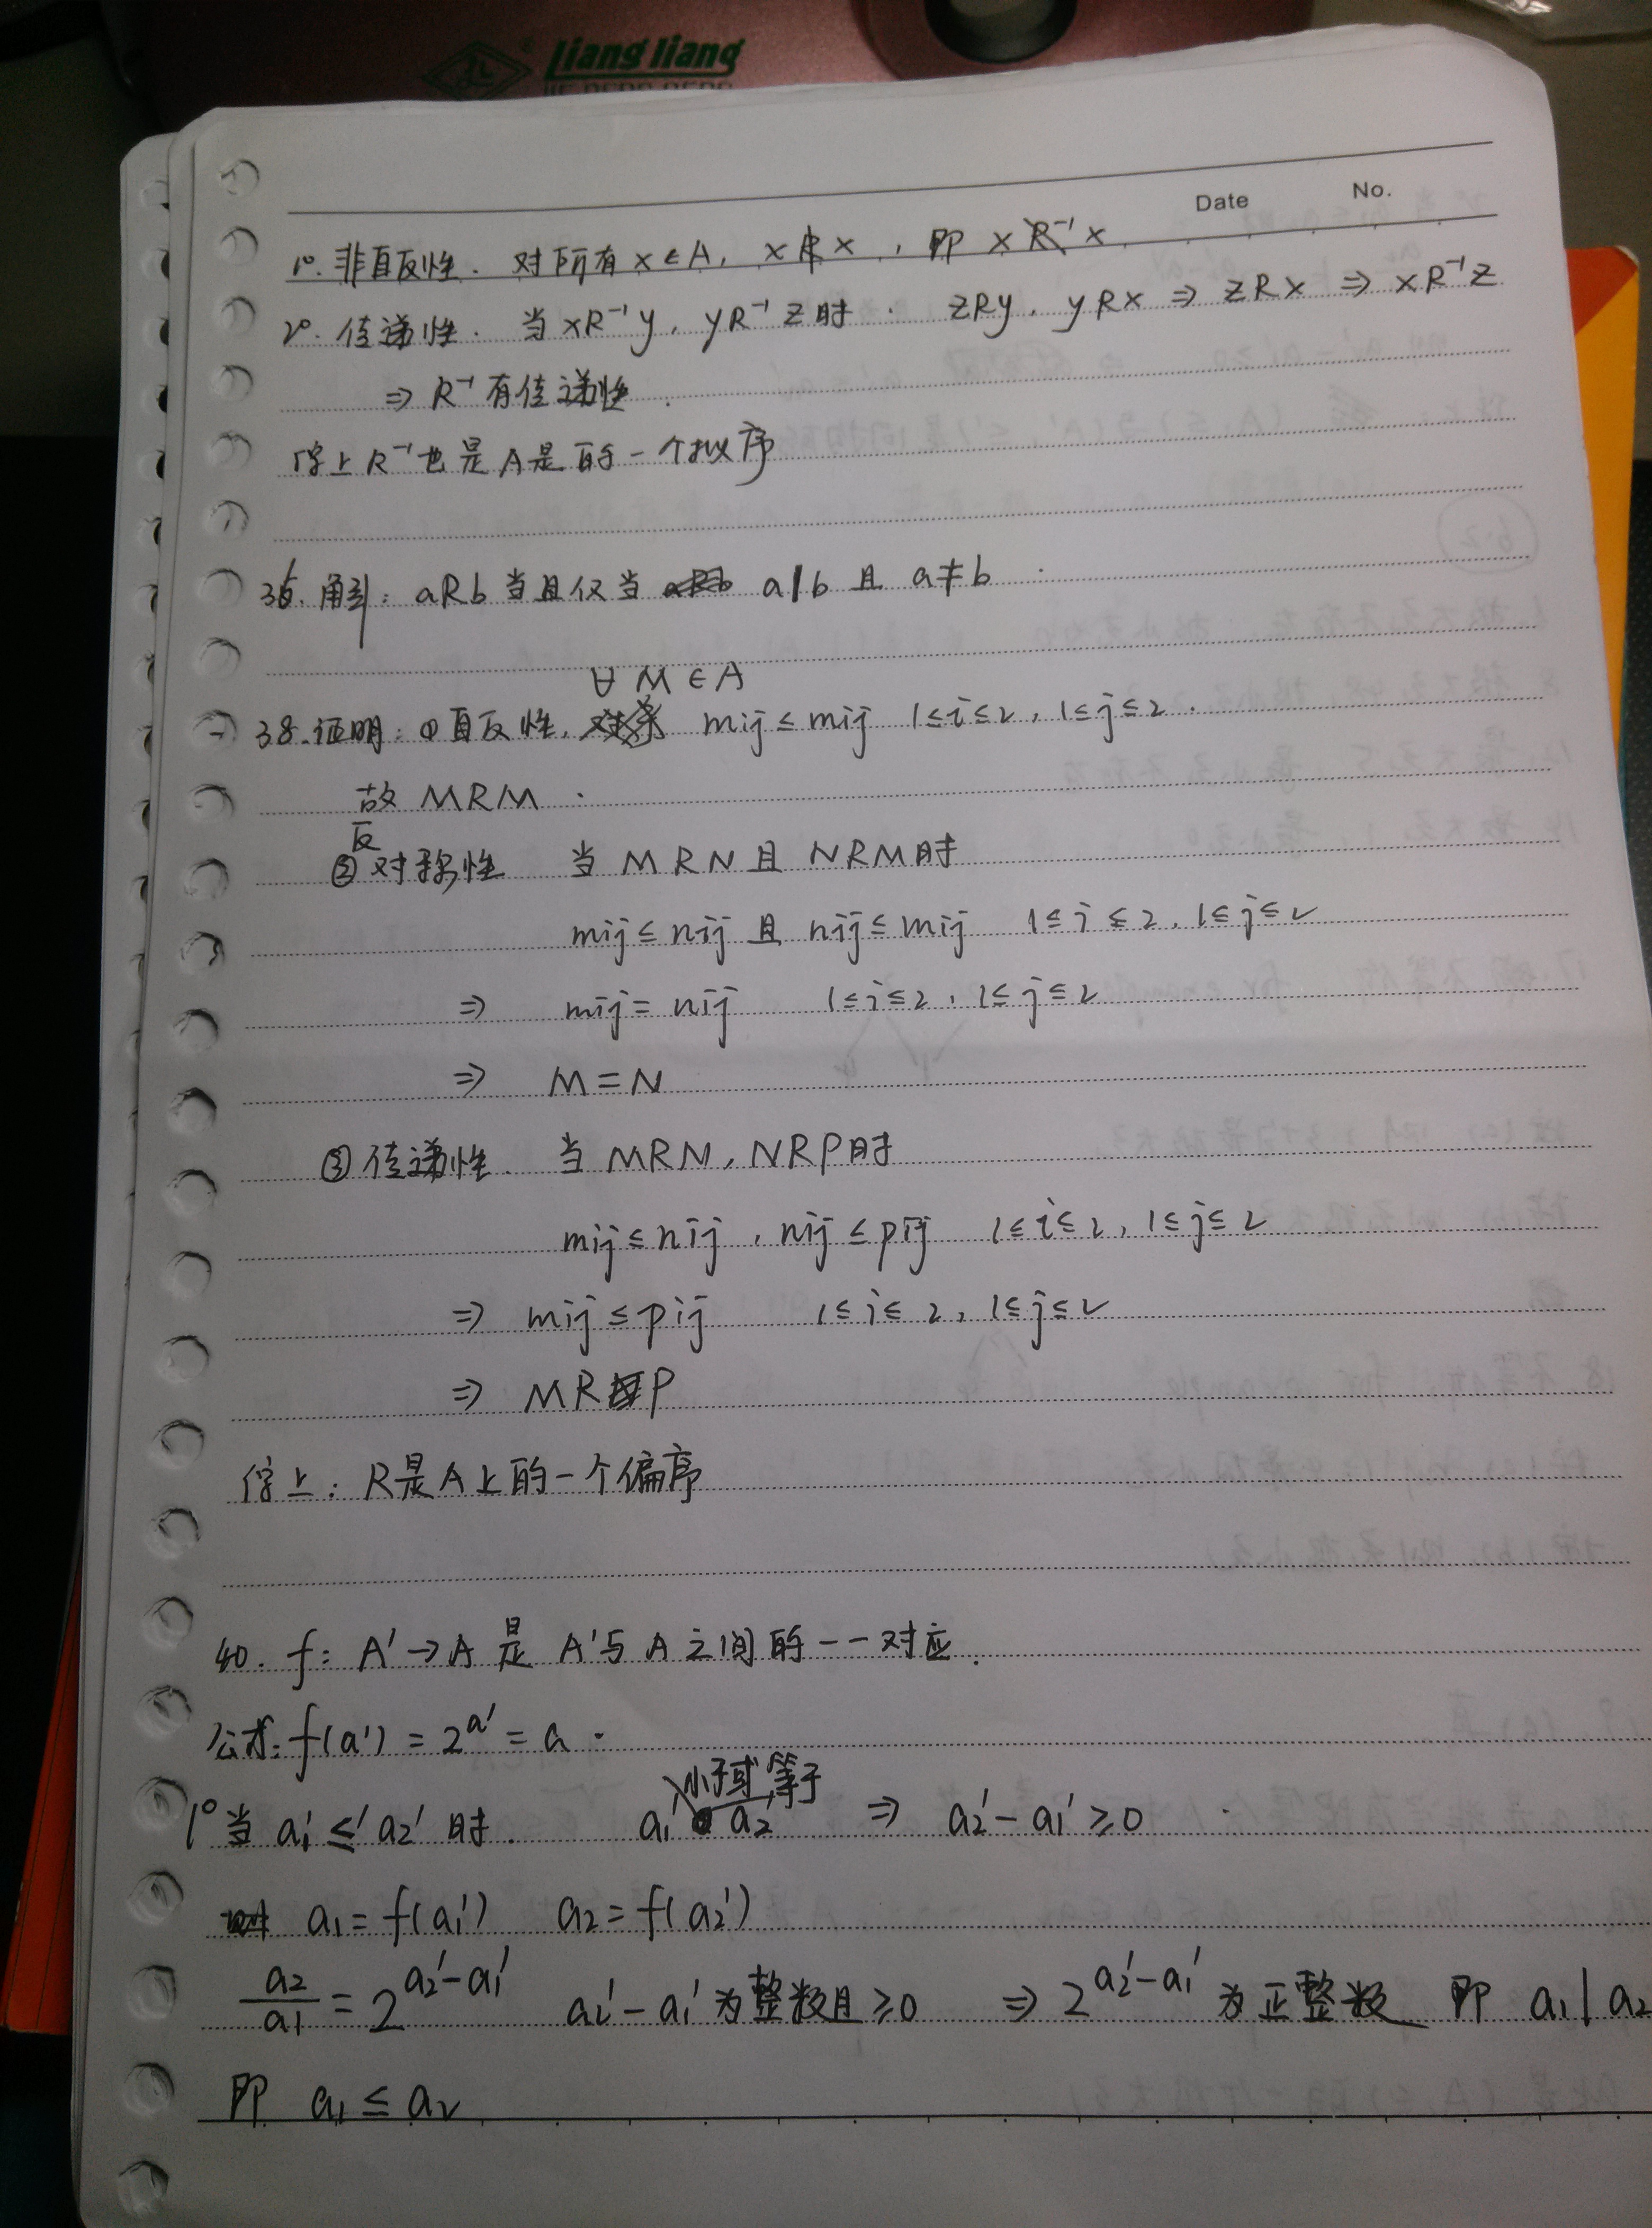 liangliang
Date No.
1°. 非自反性. 对所有 x∈A, x R̸ x , 即 x R̸⁻¹ x
2°. 传递性. 当 xR⁻¹y, yR⁻¹z 时. zRy. yRx ⇒ zRx ⇒ xR⁻¹z
⇒ R⁻¹ 有传递性.
综上 R⁻¹ 也是 A是的一个拟序
36. 解: aRb 当且仅当 a|b 且 a≠b
∀ M∈A
38. 证明: ① 自反性, mij ≤ mij 1≤i≤2, 1≤j≤2.
故 MRM.
② 反对称性 当 MRN 且 NRM 时
mij ≤ nij 且 nij ≤ mij 1≤i≤2, 1≤j≤2
⇒ mij = nij 1≤i≤2, 1≤j≤2
⇒ M=N
③ 传递性. 当 MRN, NRP 时
mij ≤ nij , nij ≤ pij 1≤i≤2, 1≤j≤2
⇒ mij ≤ pij 1≤i≤2, 1≤j≤2
⇒ MRP
综上: R是A上的一个偏序
40. f: A'→A 是 A'与A之间的一一对应.
公式: f(a') = 2^a' = a.
小于或等于
1° 当 a₁' ≤' a₂' 时. a₁' a₂' ⇒ a₂'-a₁' ≥0
a₁=f(a₁') a₂=f(a₂')
a₂/a₁ = 2^(a₂'-a₁') a₂'-a₁' 为整数且≥0 ⇒ 2^(a₂'-a₁') 为正整数 即 a₁|a₂
即 a₁ ≤ a₂